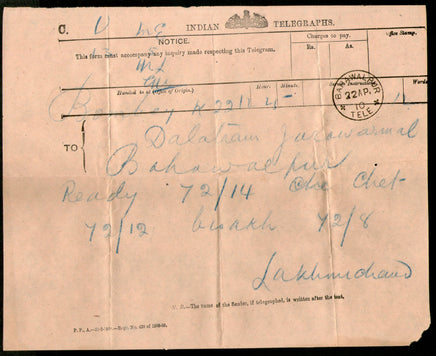 C. INDIAN TELEGRAPHS.
NOTICE.
This form must accompany any inquiry made respecting this Telegram.
Charges to pay.
Rs. As.
Office Stamp.
Handed in at (Office of Origin). Hour. Minute. Words
Bombay 22
BAHAWALPUR
22 AP. 10
TELE
TO
Dalatram
Bahawalpur
Ready 72/14 Chet
72/12 bisakh 72/8
Lakhmichand
N. B.—The name of the Sender, if telegraphed, is written after the text.